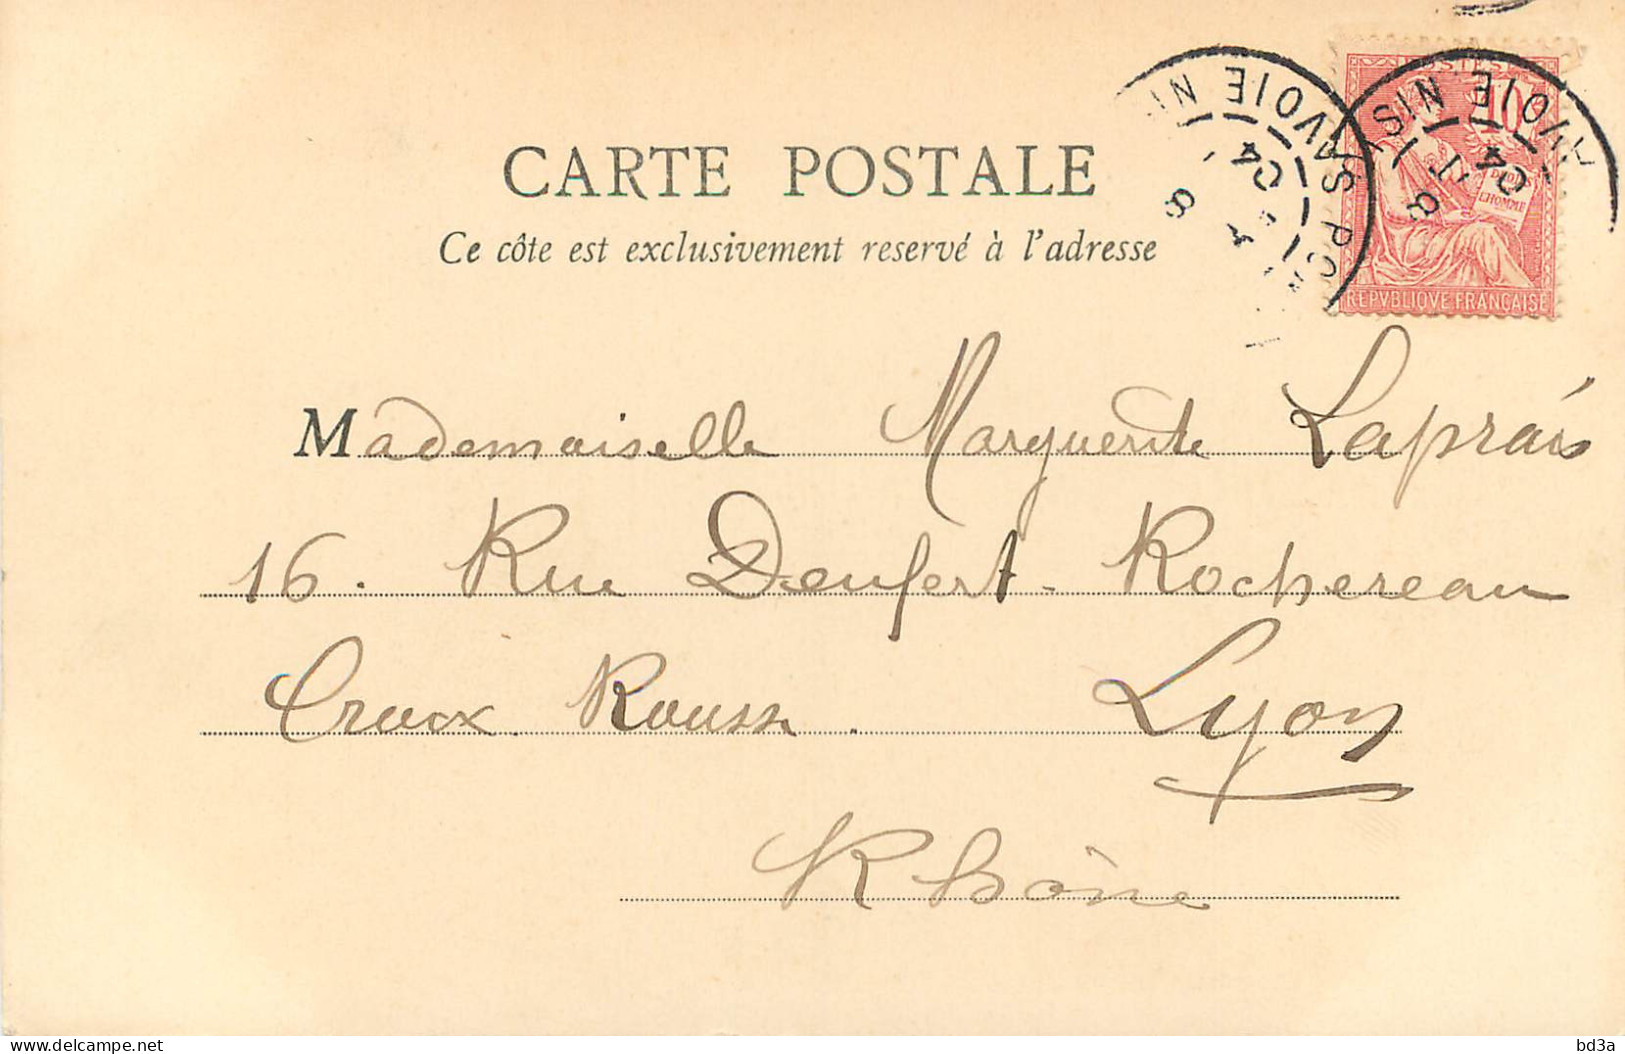 POSTES
10
DROITS
DE
L'HOMME
REPVBLIQVE FRANÇAISE
CARTE POSTALE
Ce côte est exclusivement reservé à l'adresse
Mademoiselle Marguerite Laprais
16. Rue Denfert-Rochereau
Croix Rousse. Lyon
Rhône
delcampe.net
bd3a